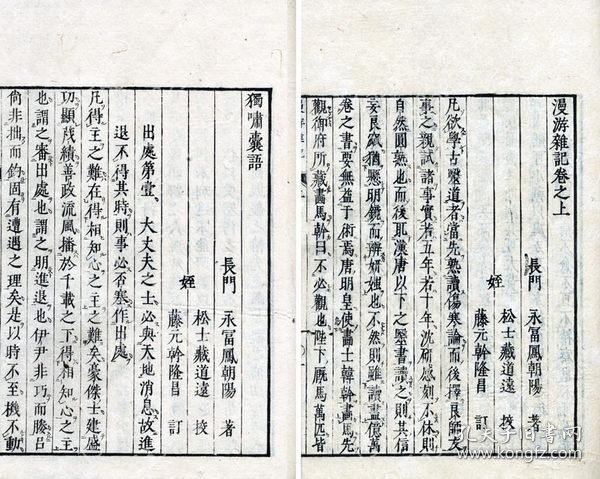 漫游雜記卷之上
長門 永冨鳳朝陽 著
姪 松士藏道遠 挍
藤元幹隆昌 訂
凡欲學古醫道者當先熟讀傷寒論而後擇良師友
事之親試諸事實若五年若十年沈研感刻不休則
自然圓熟也而後耽漢唐以下之醫書讀之則其信
妄良窳猶懸明鏡而辨妍媸也不然則雖讀盡億萬
卷之書要無益于術焉唐明皇使畵士韓幹畵馬先
觀御府所藏畵馬幹曰不必觀也陛下厩馬萬匹皆
獨嘯囊語
長門 永冨鳳朝陽 著
姪 松士藏道遠 挍
藤元幹隆昌 訂
出處第壹 大丈夫之士必與天地消息故進
退不得其時則事必否塞作出處
凡得主之難在得相知心之主之難矣豪傑士建盛
功顯茂績善政流風播於千載之下得相知心之主
也謂之審出處也謂之明進退也伊尹非巧而膝呂
尚非拙而釣固有遭遇之理矣是以時不至機不動
孔夫子旧书网
www.kongfz.com